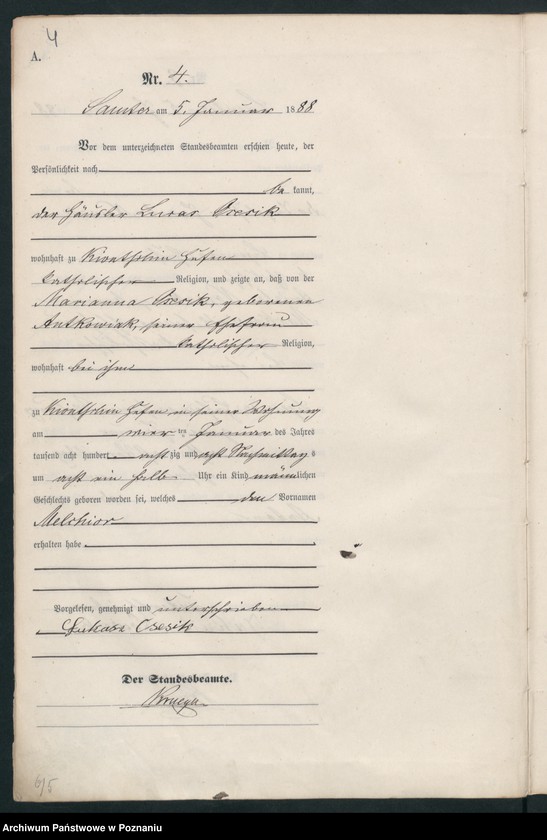 4
A.
Nr. 4.
Samter am 5. Januar 1888
Vor dem unterzeichneten Standesbeamten erschien heute, der
Persönlichkeit nach
be kannt,
der Häusler Lucas Osesik
wohnhaft zu Kwatschin Hufen
katholischer Religion, und zeigte an, daß von der
Marianna Osesik, geborenen
Antkowiak, seiner Ehefrau
katholischer Religion,
wohnhaft bei ihm
zu Hufen, in seiner Wohnung
am vier ten Januar des Jahres
tausend acht hundert acht zig und acht Nachmittag s
um acht ein halb Uhr ein Kind männlichen
Geschlechts geboren worden sei, welches den Vornamen
Melchior
erhalten habe.
Vorgelesen, genehmigt und unterschrieben
Lukasz Osesik
Der Standesbeamte.
6/5
Archiwum Państwowe w Poznaniu